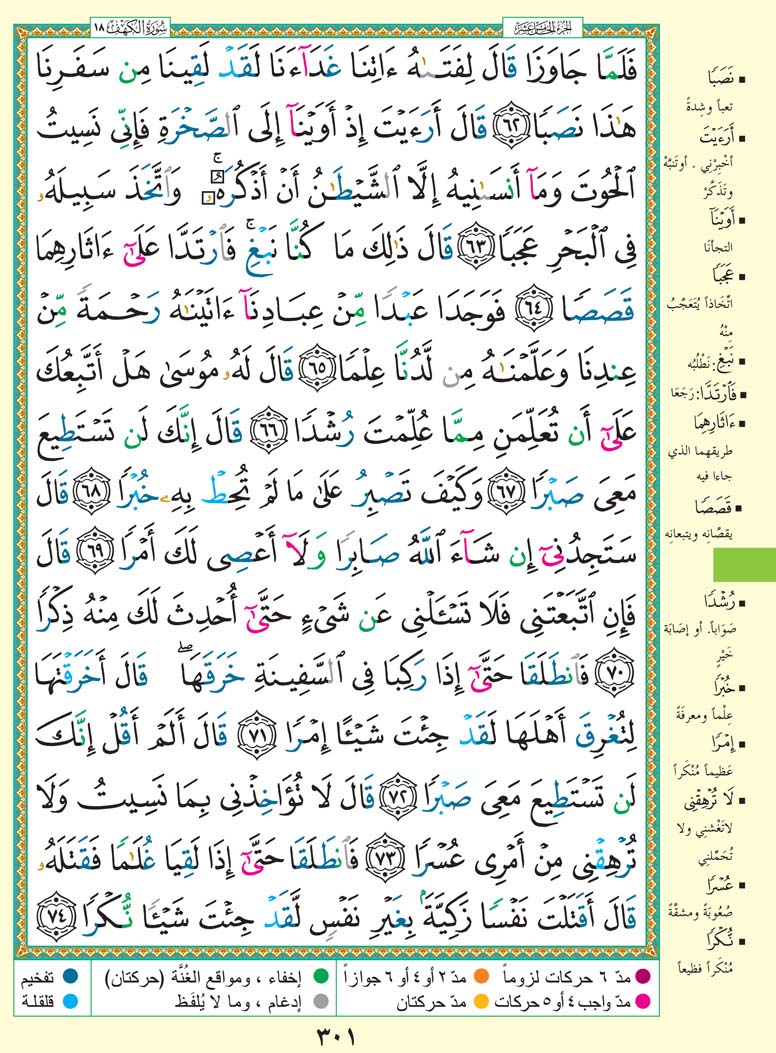 سُورَةُ الكَهْفِ ١٨
الجُزْءُ الخَامِسَ عَشَرَ
فَلَمَّا جَاوَزَا قَالَ لِفَتَىٰهُ ءَاتِنَا غَدَآءَنَا لَقَدْ لَقِينَا مِن سَفَرِنَا
هَٰذَا نَصَبًا ٦٢ قَالَ أَرَءَيْتَ إِذْ أَوَيْنَآ إِلَى ٱلصَّخْرَةِ فَإِنِّى نَسِيتُ
ٱلْحُوتَ وَمَآ أَنسَىٰنِيهُ إِلَّا ٱلشَّيْطَٰنُ أَنْ أَذْكُرَهُۥ ۚ وَٱتَّخَذَ سَبِيلَهُۥ
فِى ٱلْبَحْرِ عَجَبًا ٦٣ قَالَ ذَٰلِكَ مَا كُنَّا نَبْغِ ۚ فَٱرْتَدَّا عَلَىٰٓ ءَاثَارِهِمَا
قَصَصًا ٦٤ فَوَجَدَا عَبْدًا مِّنْ عِبَادِنَآ ءَاتَيْنَٰهُ رَحْمَةً مِّنْ
عِندِنَا وَعَلَّمْنَٰهُ مِن لَّدُنَّا عِلْمًا ٦٥ قَالَ لَهُۥ مُوسَىٰ هَلْ أَتَّبِعُكَ
عَلَىٰٓ أَن تُعَلِّمَنِ مِمَّا عُلِّمْتَ رُشْدًا ٦٦ قَالَ إِنَّكَ لَن تَسْتَطِيعَ
مَعِىَ صَبْرًا ٦٧ وَكَيْفَ تَصْبِرُ عَلَىٰ مَا لَمْ تُحِطْ بِهِۦ خُبْرًا ٦٨ قَالَ
سَتَجِدُنِىٓ إِن شَآءَ ٱللَّهُ صَابِرًا وَلَآ أَعْصِى لَكَ أَمْرًا ٦٩ قَالَ
فَإِنِ ٱتَّبَعْتَنِى فَلَا تَسْـَٔلْنِى عَن شَىْءٍ حَتَّىٰٓ أُحْدِثَ لَكَ مِنْهُ ذِكْرًا
٧٠ فَٱنطَلَقَا حَتَّىٰٓ إِذَا رَكِبَا فِى ٱلسَّفِينَةِ خَرَقَهَا ۖ قَالَ أَخَرَقْتَهَا
لِتُغْرِقَ أَهْلَهَا لَقَدْ جِئْتَ شَيْـًٔا إِمْرًا ٧١ قَالَ أَلَمْ أَقُلْ إِنَّكَ
لَن تَسْتَطِيعَ مَعِىَ صَبْرًا ٧٢ قَالَ لَا تُؤَاخِذْنِى بِمَا نَسِيتُ وَلَا
تُرْهِقْنِى مِنْ أَمْرِى عُسْرًا ٧٣ فَٱنطَلَقَا حَتَّىٰٓ إِذَا لَقِيَا غُلَٰمًا فَقَتَلَهُۥ
قَالَ أَقَتَلْتَ نَفْسًا زَكِيَّةًۢ بِغَيْرِ نَفْسٍ لَّقَدْ جِئْتَ شَيْـًٔا نُّكْرًا ٧٤
نَصَبًا
تعباً وشِدةً
أَرَءَيْتَ
أخبِرْنِي . أوتَنَبَّهْ
وتَذَكَّرْ
أَوَيْنَآ
التجأنَا
عَجَبًا
اتِّخَاذاً يُتَعَجَّبُ
مِنْهُ
نَبْغِ: نَطْلُبُه
فَٱرْتَدَّا: رَجَعَا
ءَاثَارِهِمَا
طريقهما الذي
جاءا فيه
قَصَصًا
يقصَّانِه ويتبعانِه
رُشْدًا
صَوَاباً. أو إصَابَة
خَيْرٍ
خُبْرًا
عِلْماً ومعرفَةً
إِمْرًا
عَظِيماً مُنْكَراً
لَا تُرْهِقْنِى
لاتَغْشني ولا
تُحَمِّلني
عُسْرًا
صُعُوبَةً ومشقَّةً
نُّكْرًا
مُنْكَراً فظيعاً
مدّ ٦ حركات لزوماً
مدّ ٢ أو ٤ أو ٦ جوازاً
إخفاء ، ومواقع الغُنَّة (حركتان)
تفخيم
مدّ واجب ٤ أو ٥ حركات
مدّ حركتان
إدغام ، وما لا يُلفَظ
قلقلة
٣٠١